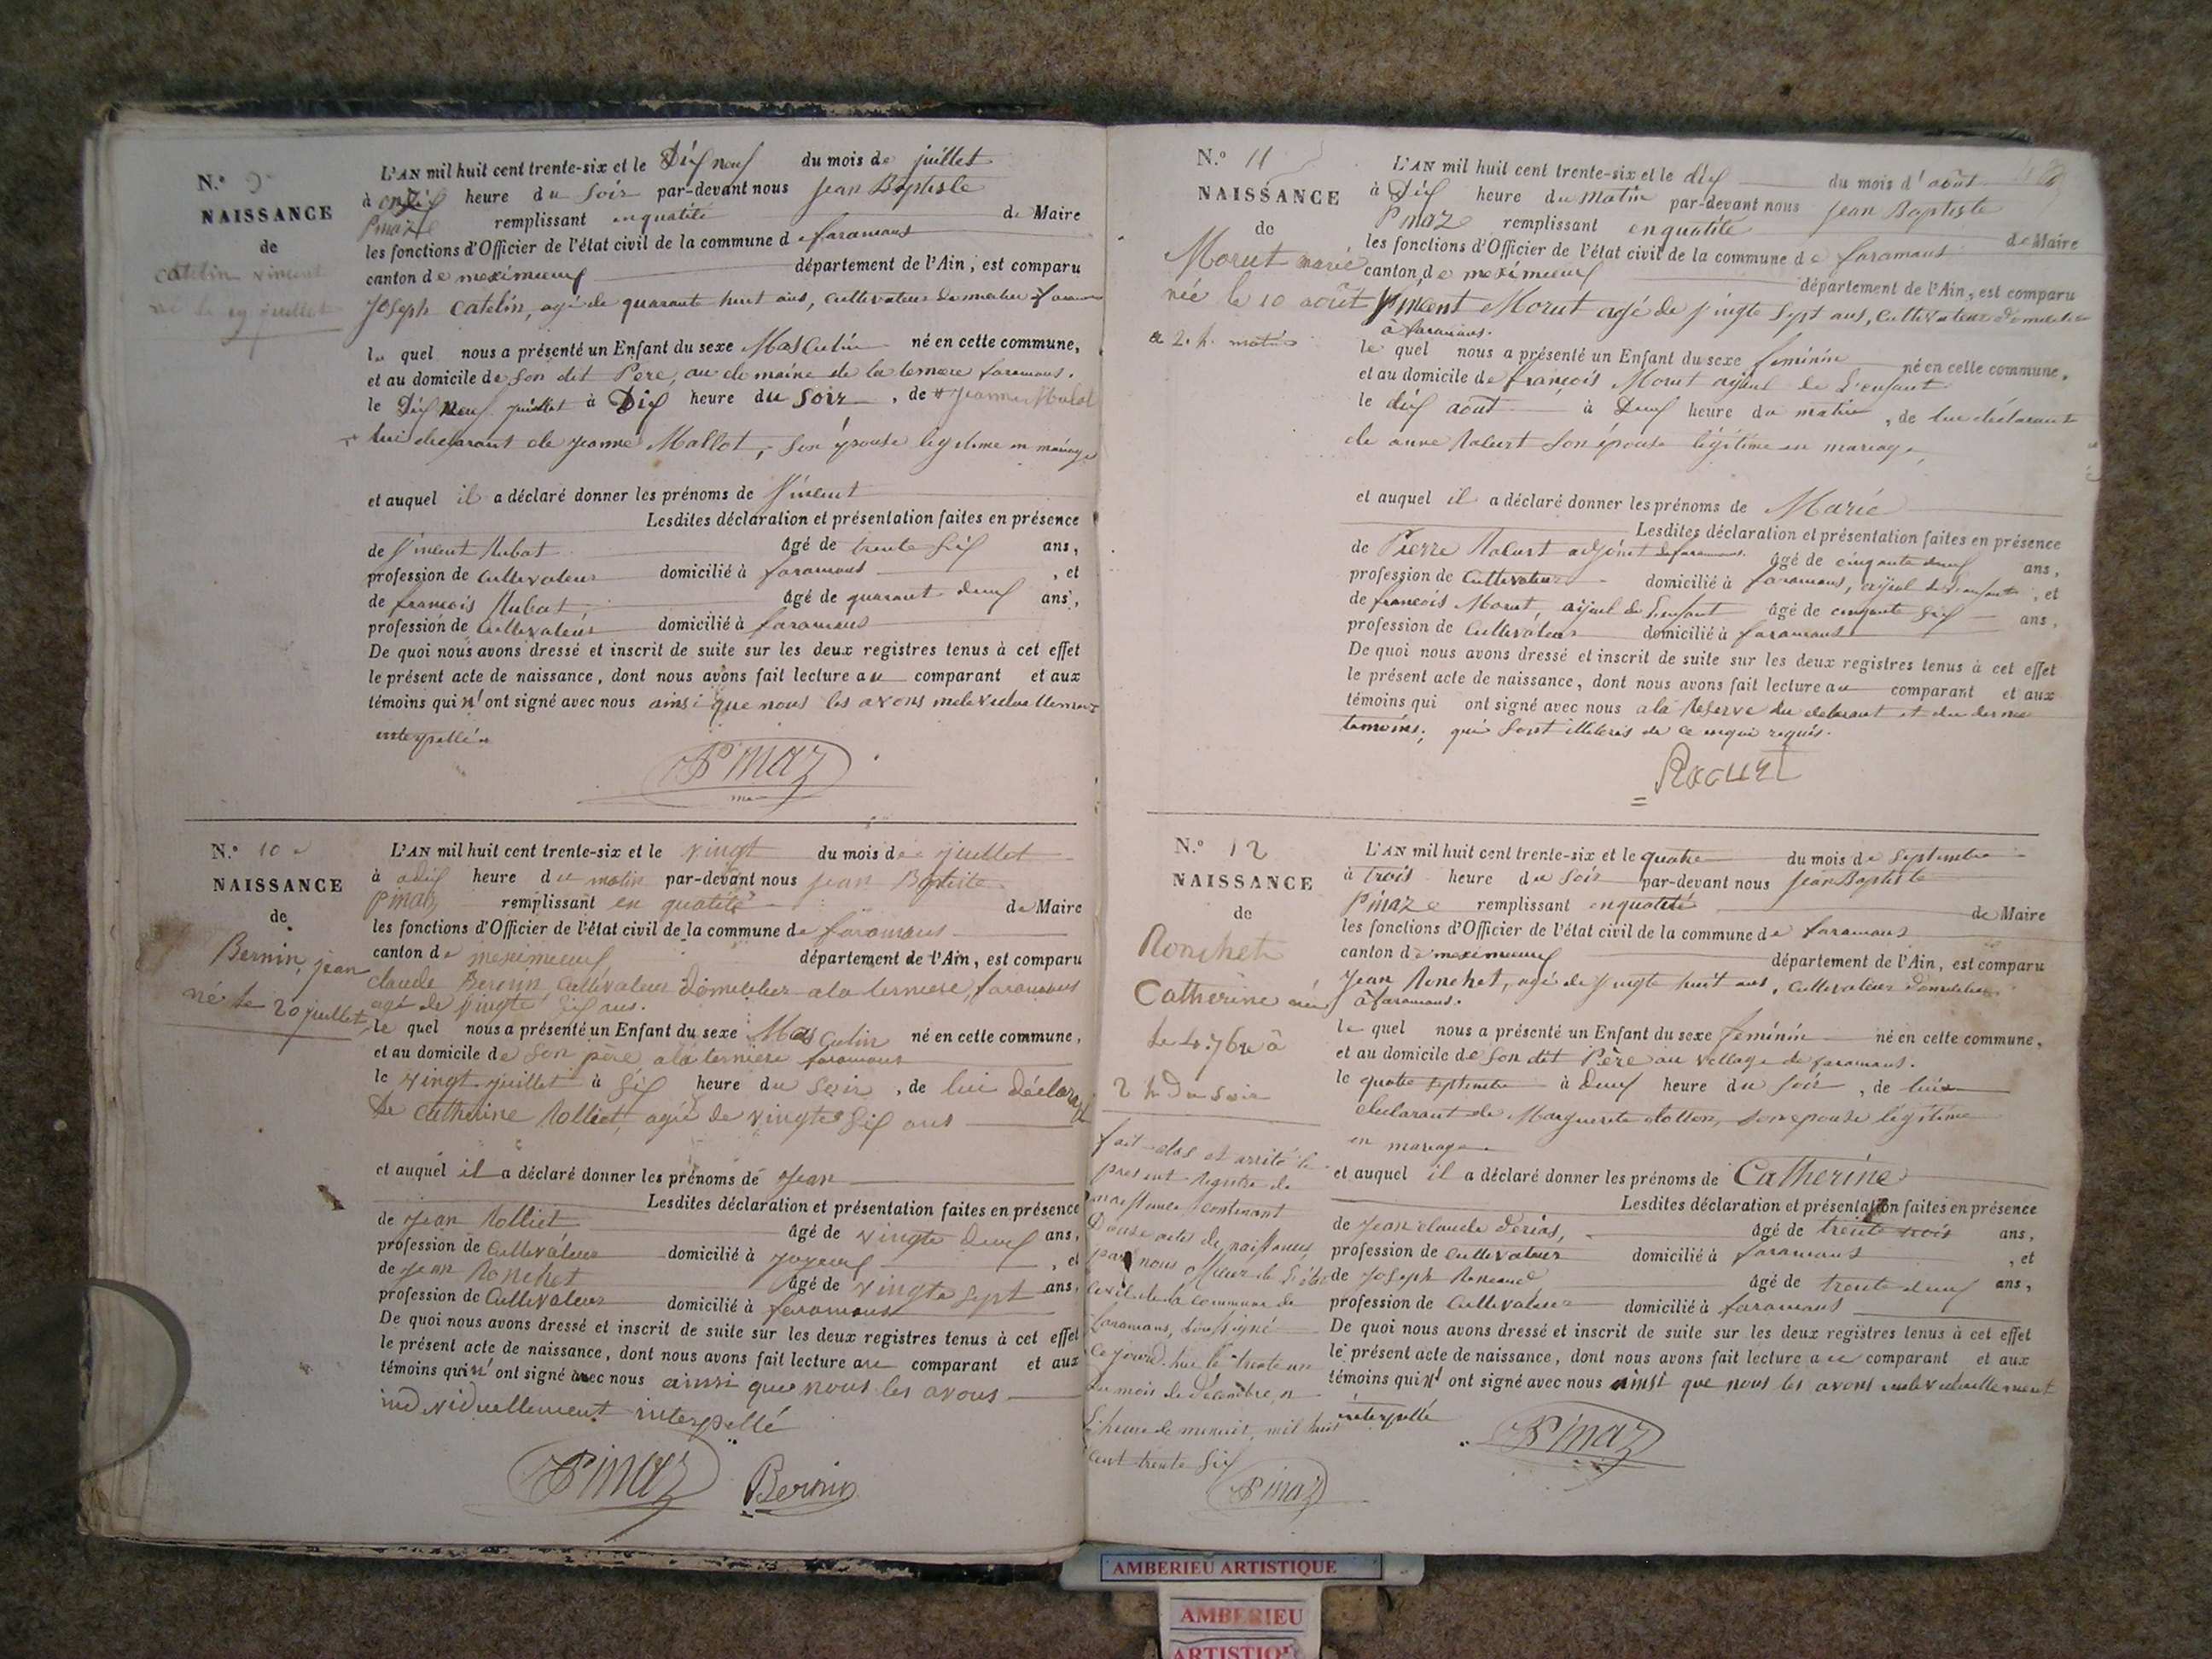 N.° 9
NAISSANCE
de
Catelin Vincent
né le 19 juillet
L'AN mil huit cent trente-six et le Dix neuf du mois de juillet
à heure du Soir par-devant nous Jean Baptiste
Pinaz remplissant en qualité de Maire
les fonctions d'Officier de l'état civil de la commune de faramans
canton de meximieux département de l'Ain, est comparu
Joseph Catelin, agé de quarante huit ans, Cultivateur
le quel nous a présenté un Enfant du sexe Masculin né en cette commune,
et au domicile de Son dit Pere, au domaine de la terniere faramans.
le Dix Neuf juillet à Dix heure du Soir, de
lui declarant de jeanne Mallot, Son épouse legitime en mariage
et auquel il a déclaré donner les prénoms de Vincent
Lesdites déclaration et présentation faites en présence
de Vincent Rubat âgé de trente Six ans,
profession de Cultivateur domicilié à faramans, et
de francois Rubat, âgé de quarant deux ans,
profession de Cultivateur domicilié à faramans
De quoi nous avons dressé et inscrit de suite sur les deux registres tenus à cet effet
le présent acte de naissance, dont nous avons fait lecture au comparant et aux
témoins qui n'ont signé avec nous ainsi que nous les avons
interpellés
Pinaz
N.° 10
NAISSANCE
de
Bernin, jean
né le 20 juillet
L'AN mil huit cent trente-six et le vingt du mois de juillet
à heure du matin par-devant nous jean Baptiste
Pinaz remplissant en qualité de Maire
les fonctions d'Officier de l'état civil de la commune de faramans
canton de meximieux département de l'Ain, est comparu
claude Bernin Cultivateur à la terniere, faramans
agé de vingte Six ans.
le quel nous a présenté un Enfant du sexe Masculin né en cette commune,
et au domicile de Son père a la terniere faramans
le vingt juillet à Six heure du soir, de lui déclarant
De Catherine Rolliet, agée de vingte Six ans
et auquel il a déclaré donner les prénoms de Jean
Lesdites déclaration et présentation faites en présence
de Jean Rolliet âgé de vingte deux ans,
profession de Cultivateur domicilié à joyeux, et
de Jean Ronchet âgé de vingte sept ans,
profession de Cultivateur domicilié à faramans
De quoi nous avons dressé et inscrit de suite sur les deux registres tenus à cet effet
le présent acte de naissance, dont nous avons fait lecture au comparant et aux
témoins qui n'ont signé avec nous ainsi que nous les avons
individuellement interpellé
Pinaz Bernin
N.° 11
NAISSANCE
de
Morut marie
née le 10 août
a 2. h. matin
L'AN mil huit cent trente-six et le dix du mois d'août
à Dix heure du Matin par-devant nous Jean Baptiste
Pinaz remplissant en qualité de Maire
les fonctions d'Officier de l'état civil de la commune de faramans
canton de meximieux département de l'Ain, est comparu
Vincent Morut agé de vingte Sept ans, Cultivateur
à faramans.
le quel nous a présenté un Enfant du sexe feminin né en cette commune,
et au domicile de françois Morut de L'enfant
le dix aout à Deux heure du matin, de lui déclarant
de anne Son épouse légitime en mariage,
et auquel il a déclaré donner les prénoms de Marie
Lesdites déclaration et présentation faites en présence
de Pierre adjoint de faramans. âgé de cinqante deux ans,
profession de Cultivateur domicilié à faramans, de L'enfant, et
de francois Morut, de L'enfant âgé de cinquante Six ans,
profession de Cultivateur domicilié à faramans
De quoi nous avons dressé et inscrit de suite sur les deux registres tenus à cet effet
le présent acte de naissance, dont nous avons fait lecture au comparant et aux
témoins qui ont signé avec nous a la Reserve du declarant et du dernier
temoins, qui Sont de ce requis.
N.° 12
NAISSANCE
de
Ronchet
Catherine née
le 4 7bre à
2 h Du Soir
L'AN mil huit cent trente-six et le quatre du mois de Septembre
à trois heure du Soir par-devant nous Jean Baptiste
Pinaz remplissant en qualité de Maire
les fonctions d'Officier de l'état civil de la commune de faramans
canton de meximieux département de l'Ain, est comparu
Jean Ronchet, agé de vingte huit ans, Cultivateur
à faramans.
le quel nous a présenté un Enfant du sexe feminin né en cette commune,
et au domicile de Son dit Père au village de faramans.
le quatre septembre à Deux heure du Soir, de lui
declarant de Marguerite Son epouse légitime
en mariage
et auquel il a déclaré donner les prénoms de Catherine
Lesdites déclaration et présentation faites en présence
de Jean claude âgé de trente trois ans,
profession de Cultivateur domicilié à faramans, et
de Joseph âgé de trente deux ans,
profession de Cultivateur domicilié à faramans
De quoi nous avons dressé et inscrit de suite sur les deux registres tenus à cet effet
le présent acte de naissance, dont nous avons fait lecture au comparant et aux
témoins qui n'ont signé avec nous ainsi que nous les avons
interpellé
Pinaz
fait clos et arrêté le
present Registre de
naissances contenant
Douze actes de naissances
par nous officier de L'état
civil de la commune de
faramans, soussigné
ce jourd'hui le trente un
du mois de décembre, a
L'heure de menuit, mil huit
cent trente Six
Pinaz
AMBERIEU ARTISTIQUE
AMBERIEU
ARTISTIQUE